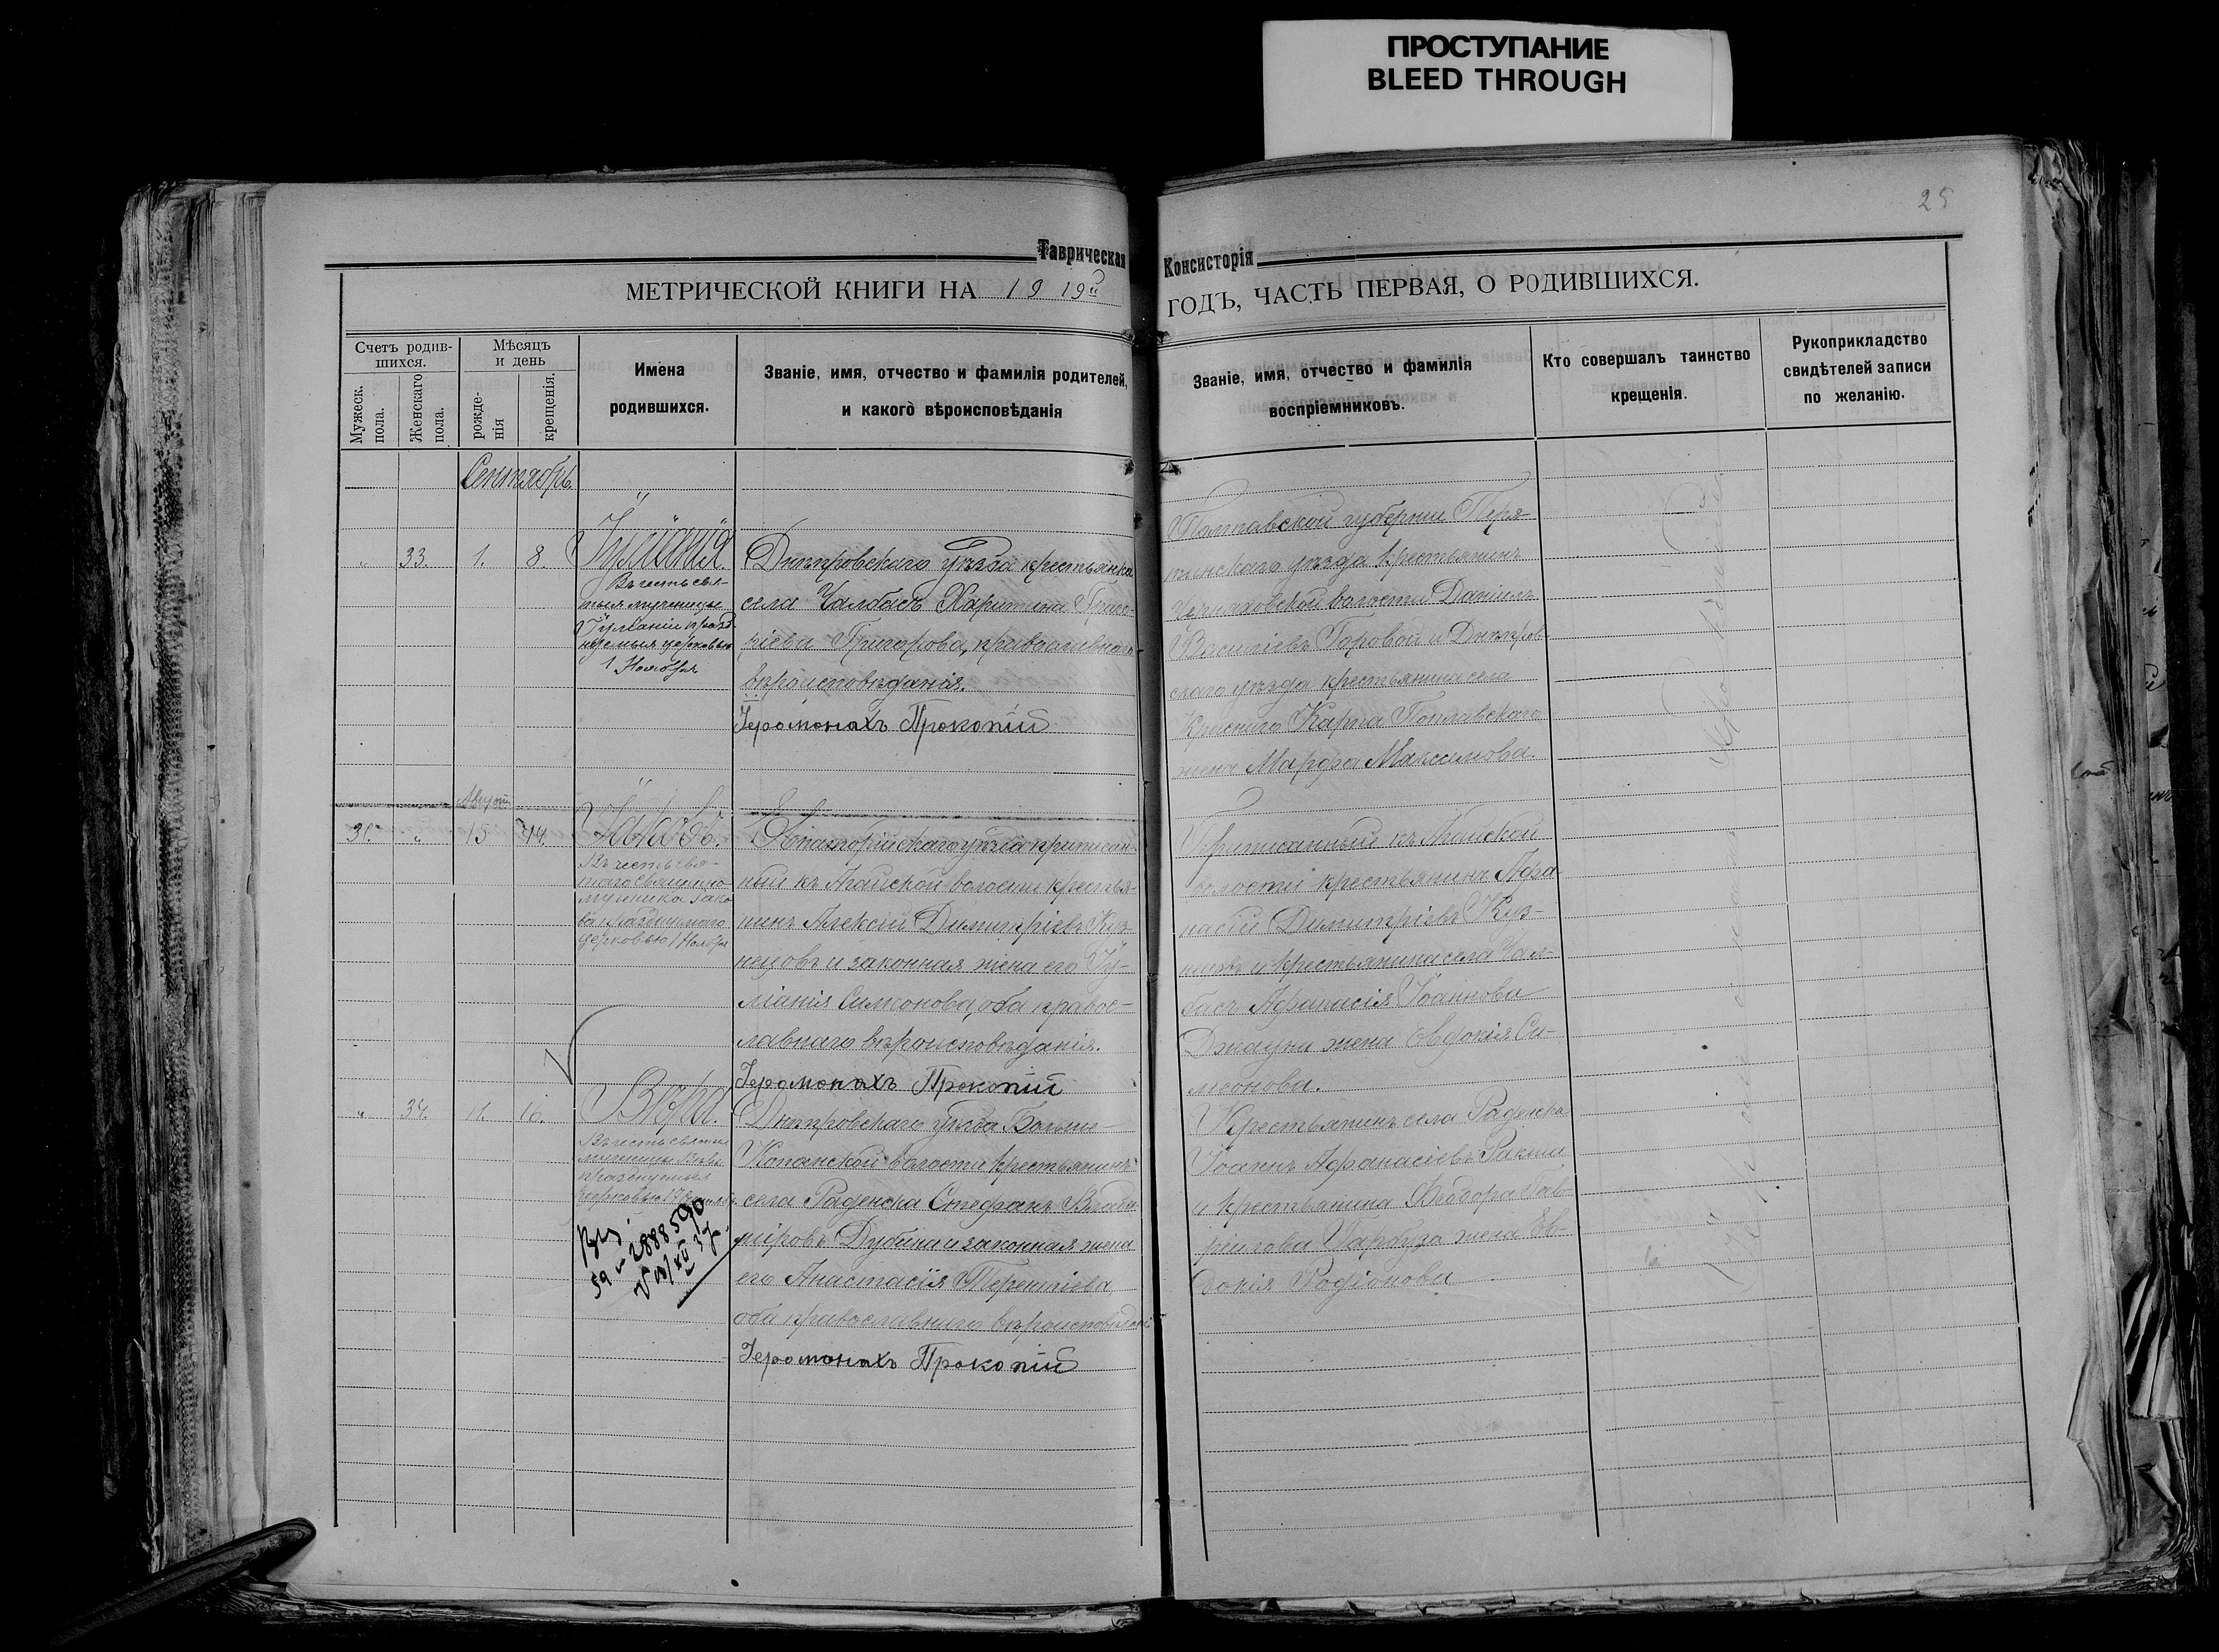 ПРОСТУПАНИЕ
BLEED THROUGH
25
Таврическая
Консисторія
МЕТРИЧЕСКОЙ КНИГИ НА 1919й
ГОДЪ, ЧАСТЬ ПЕРВАЯ, О РОДИВШИХСЯ.
Счетъ родив-
шихся.
Мужеск.
пола.
Женскаго
пола.
Мѣсяцъ
и день
рожде-
нія
крещенія.
Имена
родившихся.
Званіе, имя, отчество и фамилія родителей,
и какого вѣроисповѣданія
Званіе, имя, отчество и фамилія
воспріемниковъ.
Кто совершалъ таинство
крещенія.
Рукоприкладство
свидѣтелей записи
по желанію.
Сентябрь.
„ 33. 1. 8
Іуліанія.
Въ честь свя-
тыя мученицы
Іуліаніи празд-
нуемыя церковью
1 Ноября
Днѣпровскаго уѣзда крестьянка
села Чалбасъ Харитина Григо-
ріева Григорова, православнаго
вѣроисповѣданія.
Іеромонахъ Прокопій
Полтавской губерніи Пиря-
тинскаго уѣзда крестьянинъ
волости Даніилъ
Васильевъ Горовой и Днѣпров-
скаго уѣзда крестьянина села
Краснаго Карпа Поплавскаго
жена Марфа Максимова.
Августъ
31. „ 15 14.
Іаковъ.
Въ честь свя-
таго священно-
мученика Іако-
ва празднуемаго
церковью 1 Ноября
Евпаторійскаго уѣзда приписан-
ный къ Агайской волости крестья-
нинъ Алексій Димитріевъ Куз-
нецовъ и законная жена его Іу-
ліанія Симеонова, оба правос-
лавнаго вѣроисповѣданія.
Іеромонахъ Прокопій
Приписанный къ Агайской
волости крестьянинъ Афа-
насій Димитріевъ Куз-
нецовъ и крестьянина села Чал-
басъ Афанасія Іоаннова
жена Евдокія Си-
меонова.
„ 34. 11. 16.
Вѣра.
Въ честь святыя
мученицы Вѣры
празднуемыя
церковью 17 Сентября
Днѣпровскаго уѣзда Больше-
Копанской волости крестьянинъ
села Раденска Стефанъ Влади-
міровъ Дубина и законная жена
его Анастасія Терентіева,
оба православнаго вѣроисповѣданія
Іеромонахъ Прокопій
Крестьянинъ села Раденска
Іоаннъ Афанасіевъ Ракша
и крестьянина Ѳеодора Гав-
ріилова жена Ев-
докія Родіонова